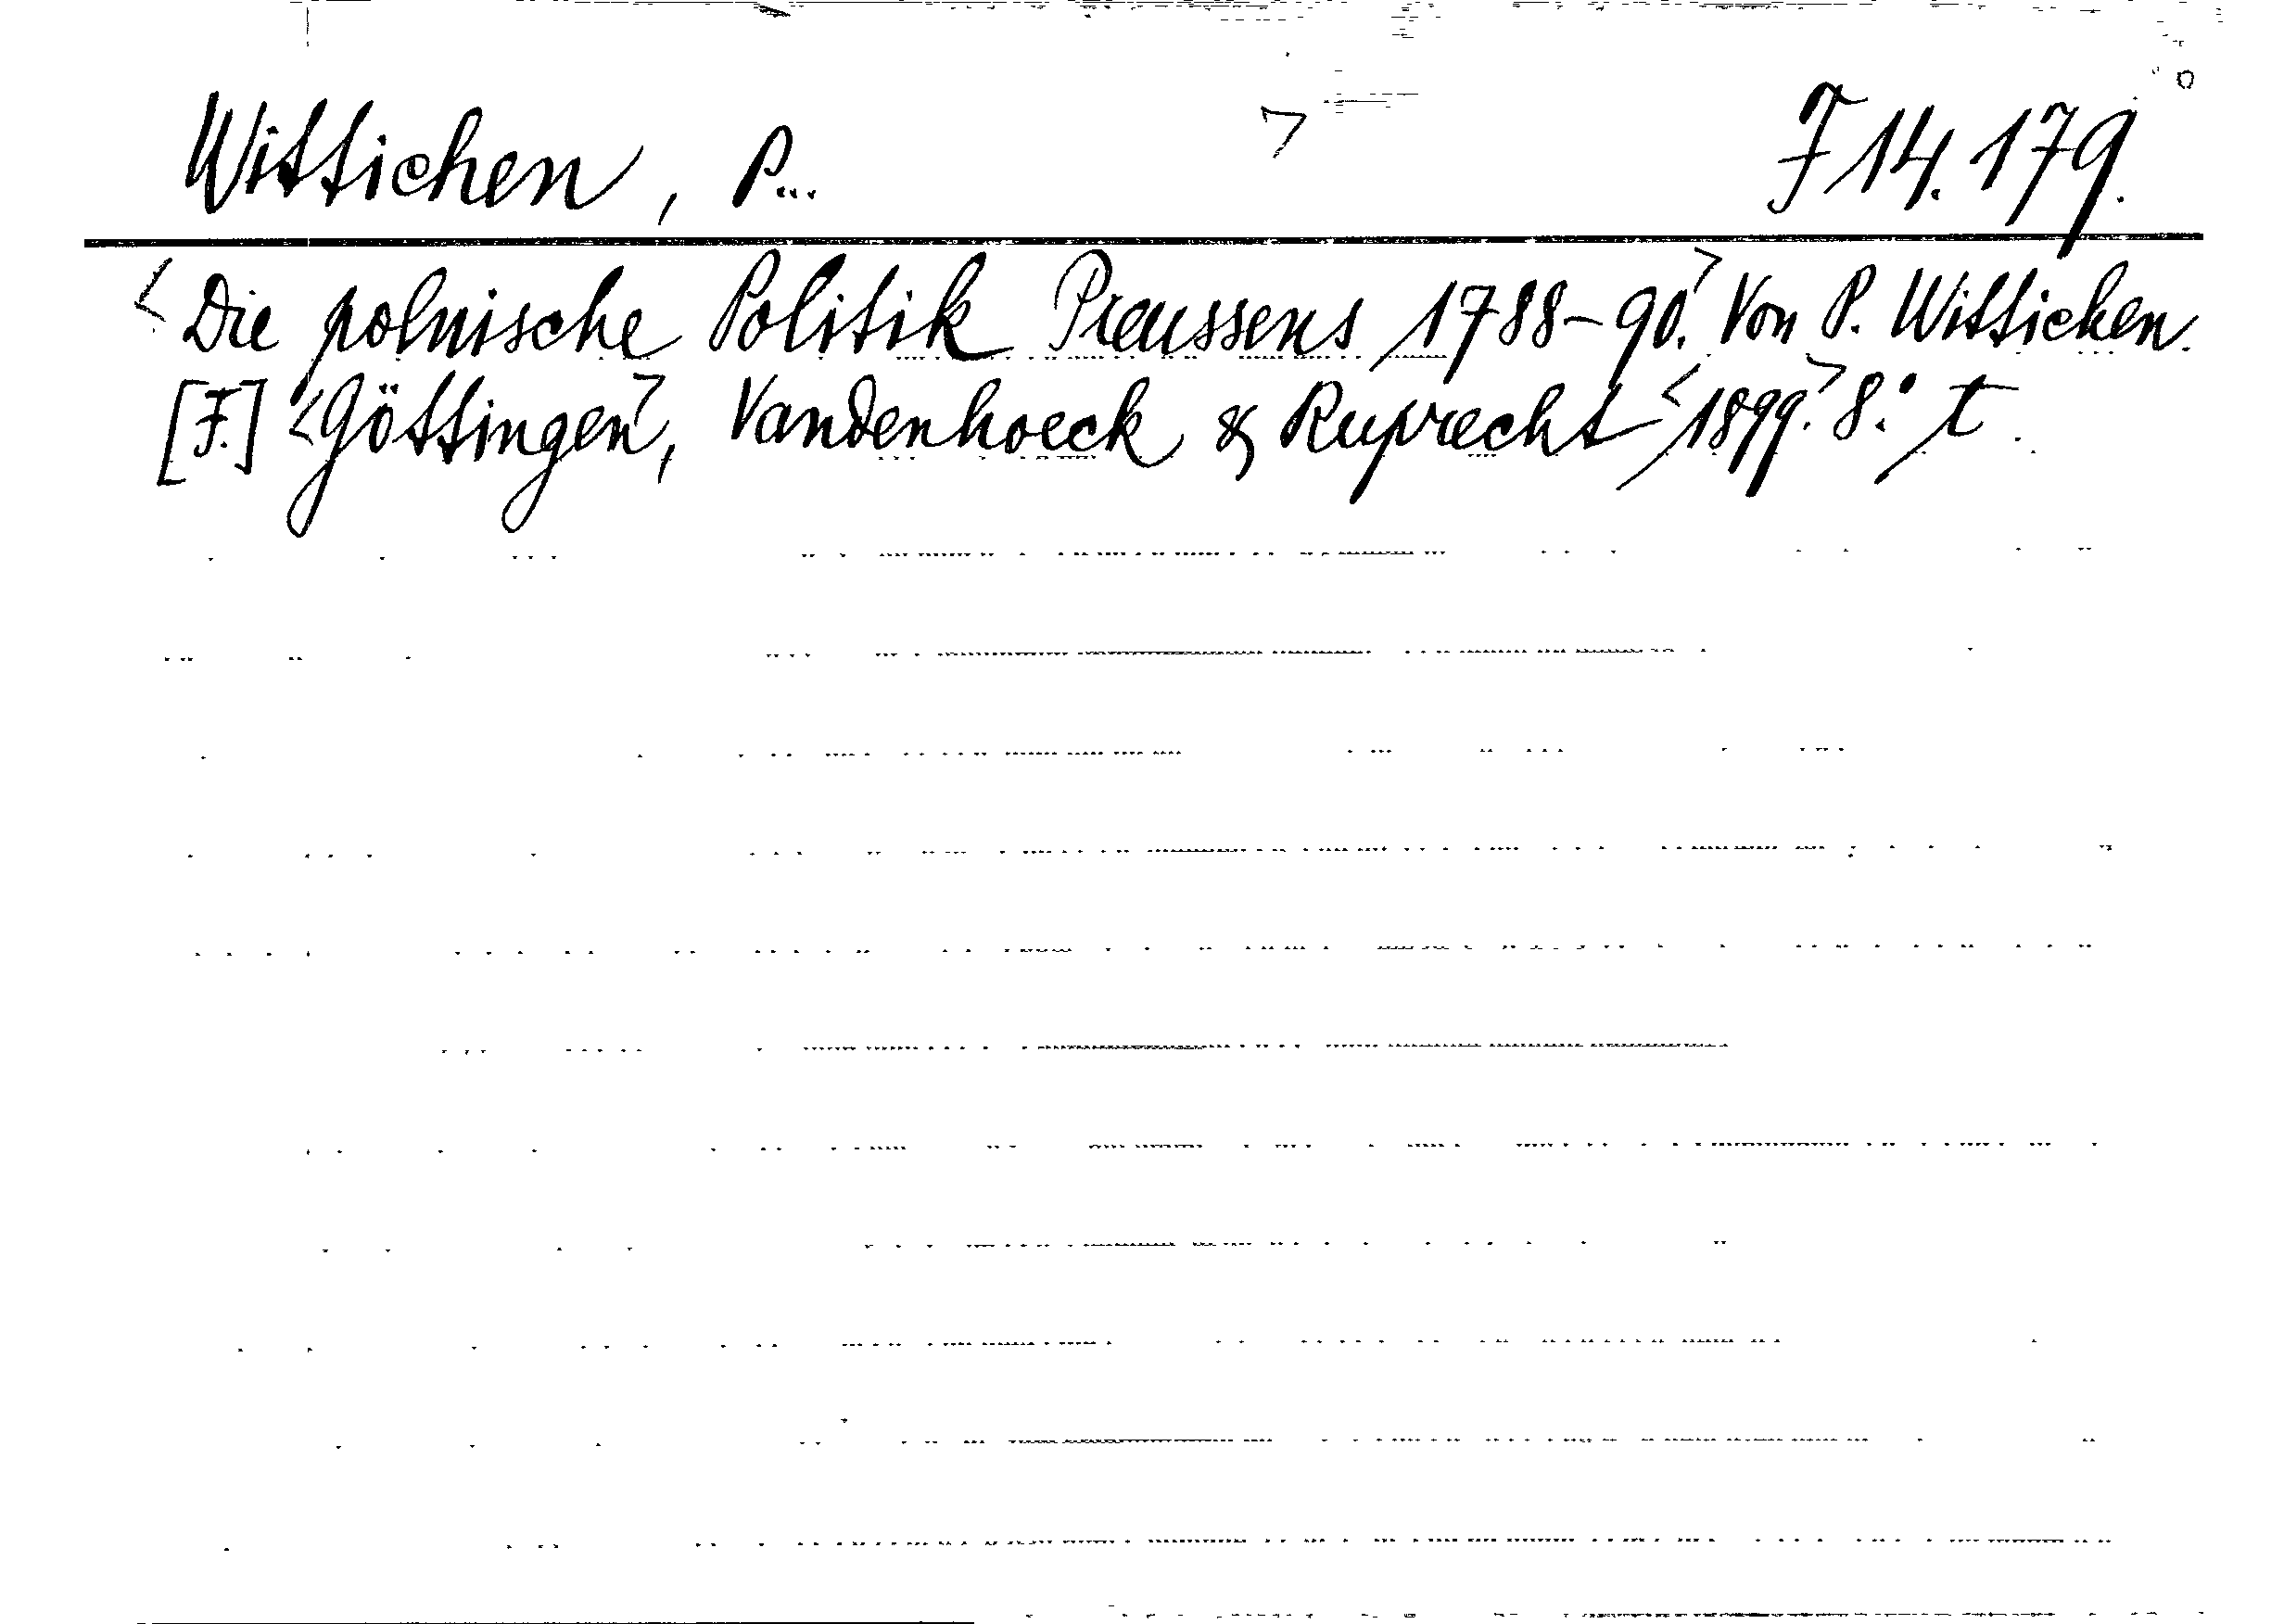 Wittichen, P... > F 14.179.
<Die polnische Politik Preussens 1788-90.> Von P. Wittichen.
[F.] <Göttingen>, Vandenhoeck & Ruprecht <1899.> 8.° t.